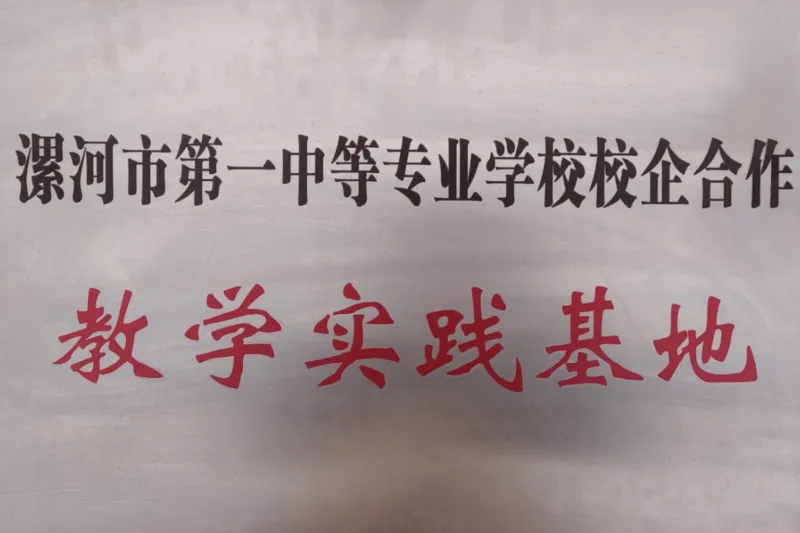 漯河市第一中等专业学校校企合作
教学实践基地